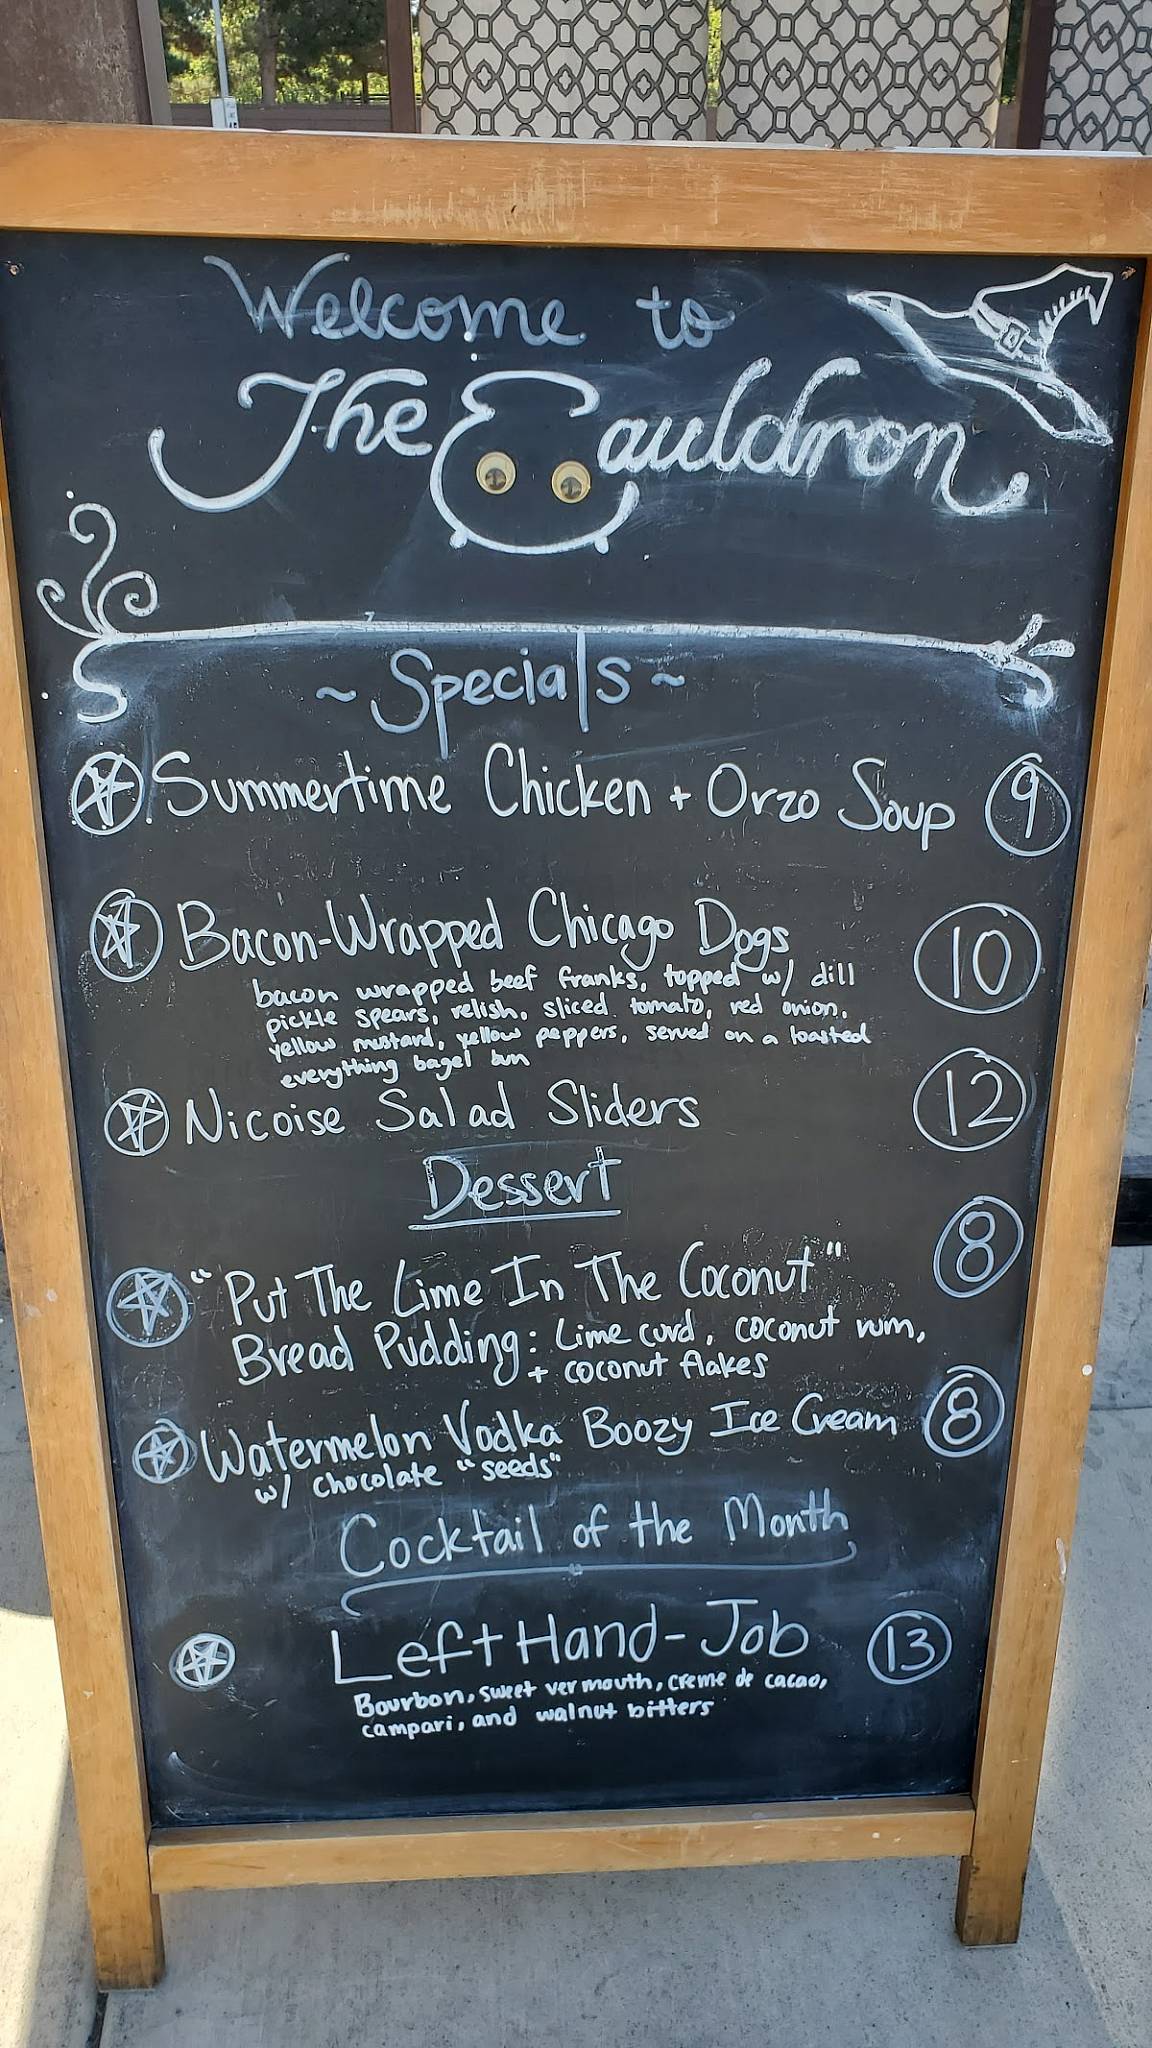 Welcome to
The Cauldron
~ Specials ~
Summertime Chicken + Orzo Soup 9
Bacon-Wrapped Chicago Dogs 10
bacon wrapped beef franks, topped w/ dill
pickle spears, relish, sliced tomato, red onion,
yellow mustard, yellow peppers, served on a toasted
everything bagel bun
Nicoise Salad Sliders 12
Dessert
"Put The Lime In The Coconut" 8
Bread Pudding: Lime curd, coconut rum,
+ coconut flakes
Watermelon Vodka Boozy Ice Cream 8
w/ chocolate "seeds"
Cocktail of the Month
Left Hand-Job 13
Bourbon, sweet vermouth, creme de cacao,
campari, and walnut bitters